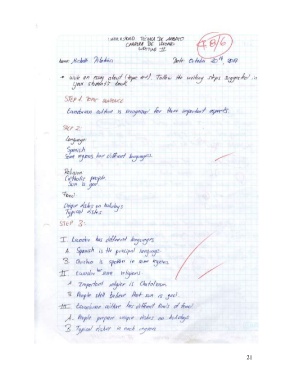 UNIVERSIDAD TÉCNICA DE AMBATO
CARRERA DE IDIOMAS
WRITING II
Name: Michelle
Date: October 20th
• Write an essay about (topic one). Follow the writing steps suggested in
your student's book
STEP 1 TOPIC SENTENCE
Ecuadorian culture is recognized for three important aspects.
STEP 2
Language
Spanish
Some regions has different languages.
Religion
Catholic people
Sun is god
Food
Unique dishes on holidays
Typical dishes
STEP 3
I Ecuador has different languages.
A. Spanish is the principal language
B. Quechua is spoken in some regions
II Ecuador some religions
A. Important religion is Catholicism
B. People still believe that sun is goal.
III Ecuadorian culture has different kinds of food.
A. People prepare unique dishes on holidays
B. Typical dishes in each regions
21